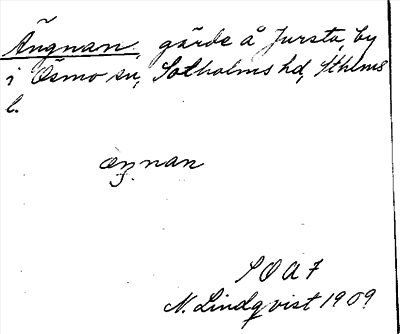 Ängnan, gärde å Jursta, by
i Ösmo sn, Sotholms hd, Sthlms
l.
æŋnan
SOAF
N. Lindqvist 1909